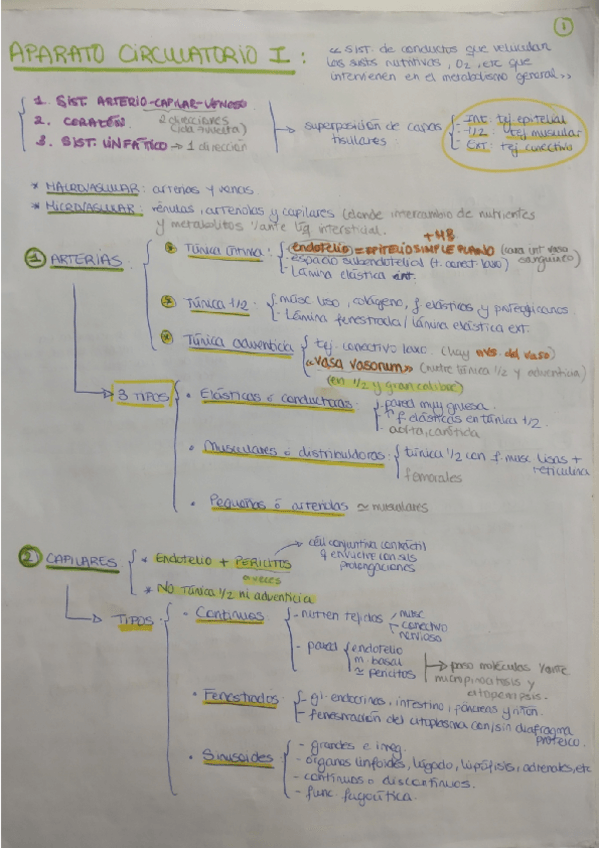 1
APARATO CIRCULATORIO I :
« SIST. de conductos que vehiculan
los susts nutritivas, O2, etc que
intervienen en el metabolismo general »
1. SIST. ARTERIO-CAPILAR-VENOSO
2. CORAZÓN
2 direcciones
(ida y vuelta)
3. SIST. LINFÁTICO → 1 dirección
superposición de capas
tisulares
- INT: tej epitelial
- 1/2: tej muscular
- EXT: tej conectivo
* MACROVASCULAR: arterias y venas.
* MICROVASCULAR: vénulas, arteriolas y capilares (donde intercambio de nutrientes
y metabolitos 1/ante líq intersticial.
1 ARTERIAS
* Túnica íntima:
+ MB
- (endotelio) = EPITELIO SIMPLE PLANO (cara int vaso
sanguíneo)
- espacio subendotelial (t. conect. laxo)
- Lámina elástica int.
* Túnica 1/2:
- músc liso, colágeno, f elásticas y proteoglicanos.
- Lámina fenestrada / lámina elástica ext.
* Túnica adventicia
tej conectivo laxo. (hay nvs. del vaso)
«vasa vasorum» (nutre túnica 1/2 y adventicia)
(en 1/2 y gran calibre)
3 TIPOS
• Elásticas ó conductoras
- pared muy gruesa.
- ↑ f elásticas en túnica 1/2.
- aorta, carótida
• Musculares ó distribuidoras
túnica 1/2 con f. musc lisas +
reticulina
femorales
• Pequeñas ó arteriolas ≃ musculares
2 CAPILARES
* Endotelio + PERICITOS
a veces
cél conjuntiva contráctil
q envuelve con sus
prolongaciones
* No túnica 1/2 ni adventicia
TIPOS
• Continuos
- nutren tejidos
musc
conectivo
nervioso
- pared
endotelio
m. basal
≃ pericitos
paso moléculas 1/ante
micropinocitosis y
citopempsis.
• Fenestrados
- gl. endocrinas, intestino, páncreas y riñón.
- fenestración del citoplasma con/sin diafragma
proteico.
• Sinusoides
- grandes e irreg.
- órganos linfoides, hígado, hipófisis, adrenales, etc
- continuos o discontinuos.
- func. fagocítica.